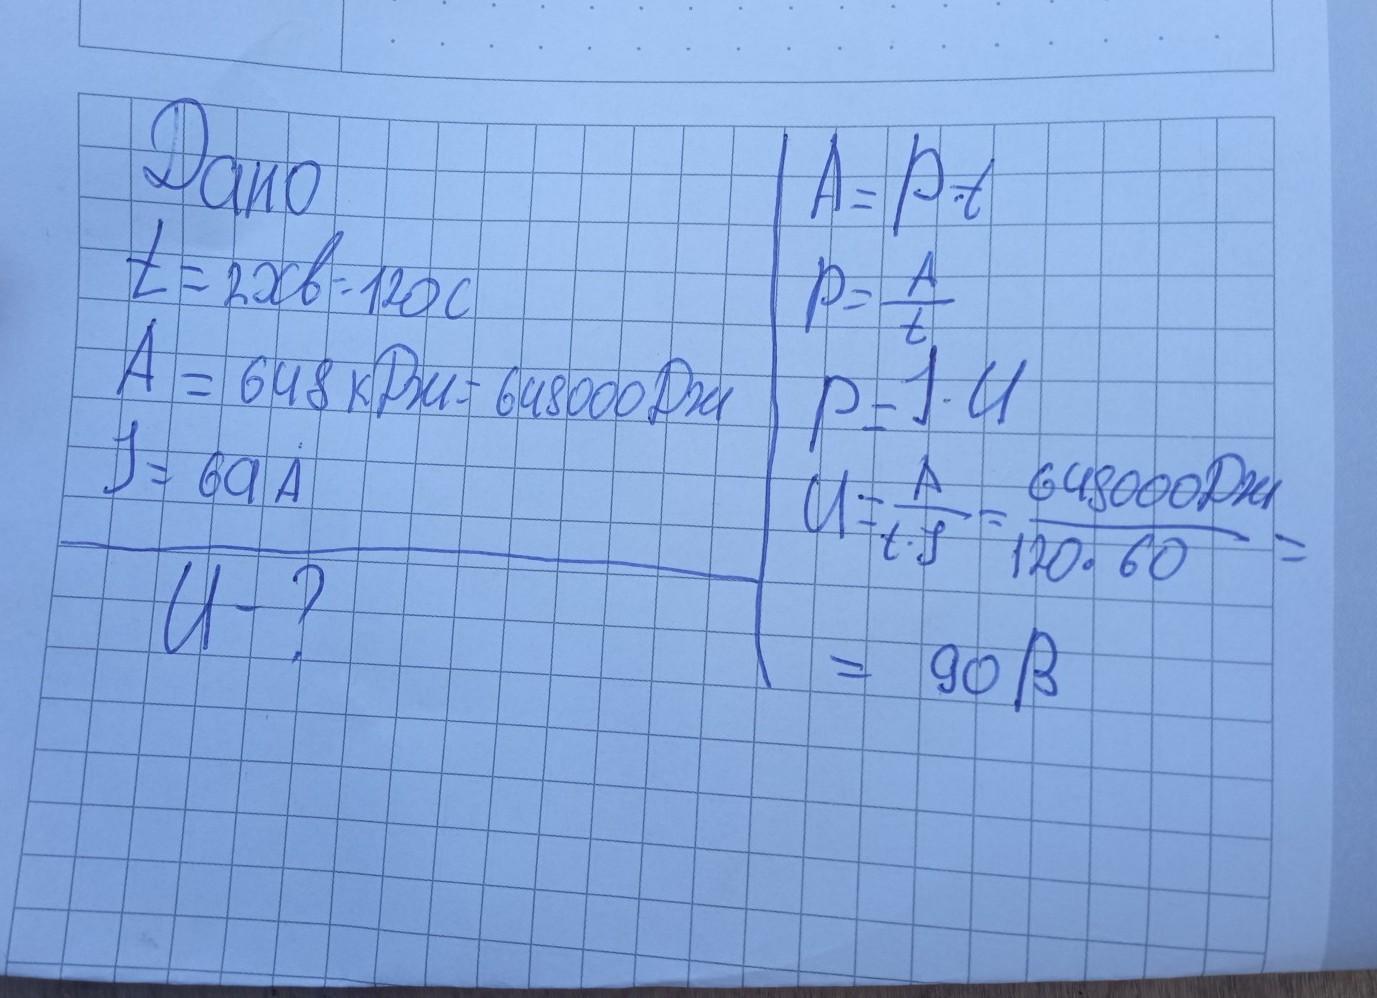 Дано
t = 2хв = 120с
A = 648 кДж = 648000 Дж
I = 60 А
U - ?
A = P·t
P = A/t
P = I·U
U = A/t·I = 648000Дж/120·60 =
= 90 В